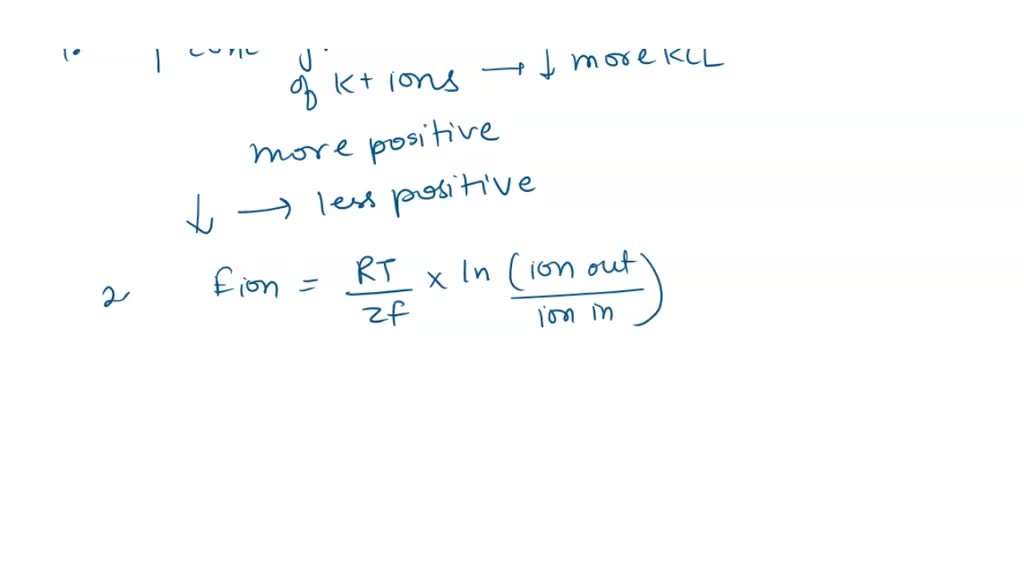 1.
of K+ ions → ↓ more KCL
more positive
↓ → less positive
2 Eion = RT/zf × ln (ion out/ion in)